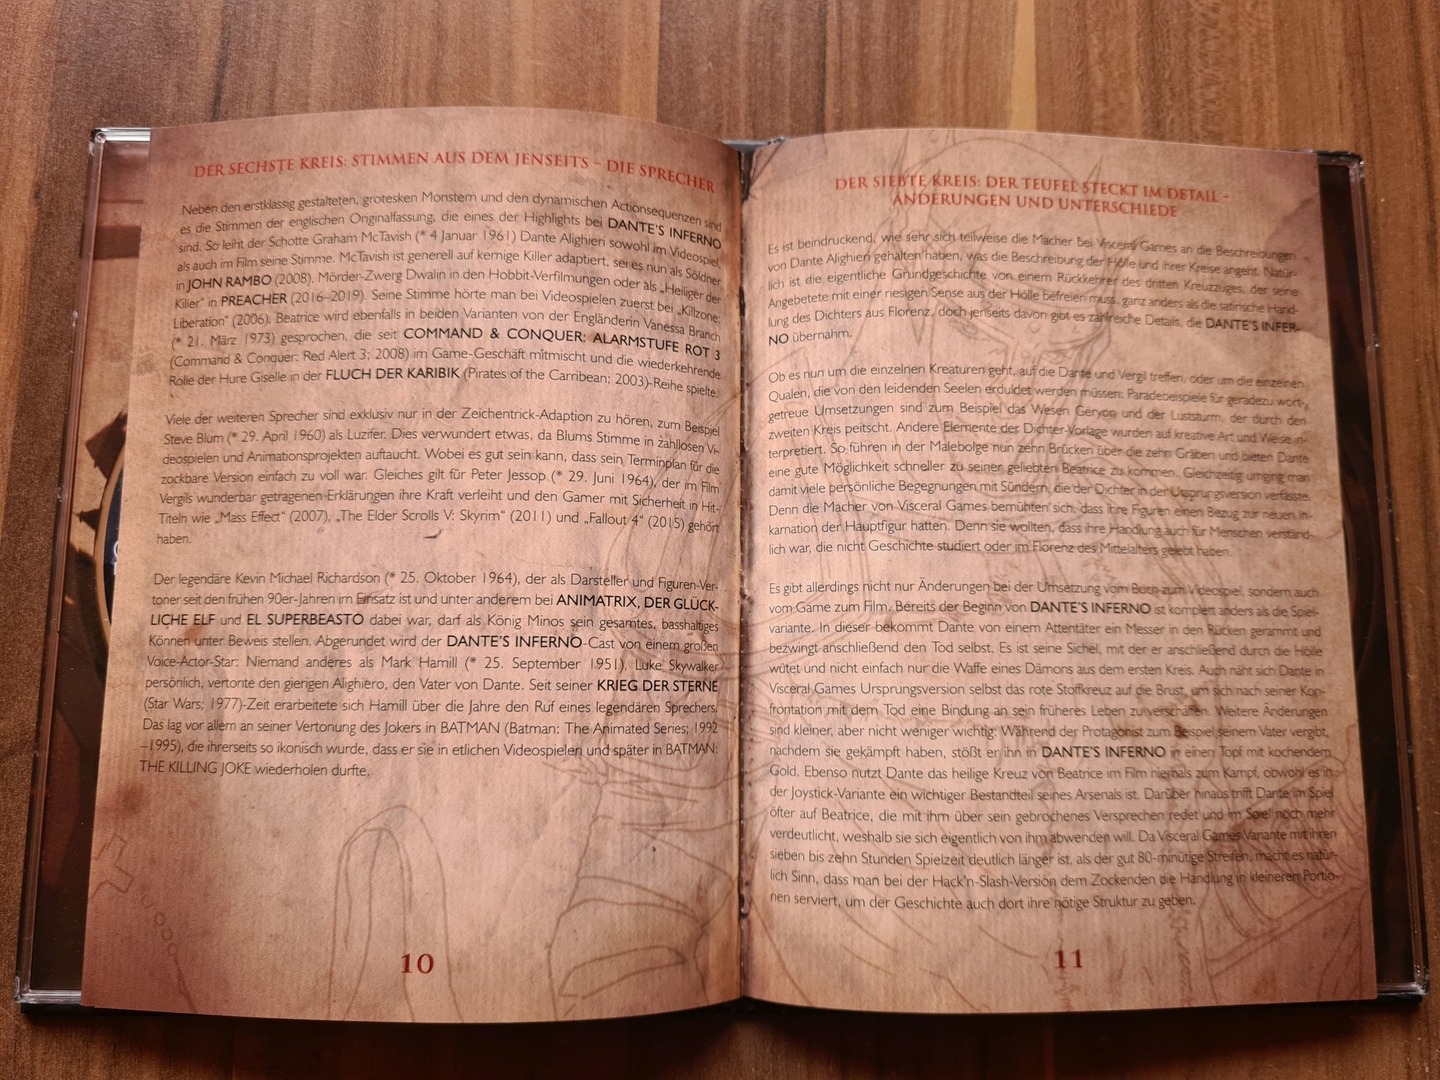 DER SECHSTE KREIS: STIMMEN AUS DEM JENSEITS – DIE SPRECHER
Neben den erstklassig gestalteten, grotesken Monstern und den dynamischen Actionsequenzen sind
es die Stimmen der englischen Originalfassung, die eines der Highlights bei DANTE'S INFERNO
sind. So leiht der Schotte Graham McTavish (* 4 Januar 1961) Dante Alighieri sowohl im Videospiel,
als auch im Film seine Stimme. McTavish ist generell auf kernige Killer adaptiert, sei es nun als Söldner
in JOHN RAMBO (2008), Mörder-Zwerg Dwalin in den Hobbit-Verfilmungen oder als „Heiliger der
Killer" in PREACHER (2016–2019). Seine Stimme hörte man bei Videospielen zuerst bei „Killzone:
Liberation" (2006). Beatrice wird ebenfalls in beiden Varianten von der Engländerin Vanessa Branch
(* 21. März 1973) gesprochen, die seit COMMAND & CONQUER: ALARMSTUFE ROT 3
(Command & Conquer: Red Alert 3; 2008) im Game-Geschäft mitmischt und die wiederkehrende
Rolle der Hure Giselle in der FLUCH DER KARIBIK (Pirates of the Carribean; 2003)-Reihe spielte.
Viele der weiteren Sprecher sind exklusiv nur in der Zeichentrick-Adaption zu hören, zum Beispiel
Steve Blum (* 29. April 1960) als Luzifer. Dies verwundert etwas, da Blums Stimme in zahllosen Vi-
deospielen und Animationsprojekten auftaucht. Wobei es gut sein kann, dass sein Terminplan für die
zockbare Version einfach zu voll war. Gleiches gilt für Peter Jessop (* 29. Juni 1964), der im Film
Vergils wunderbar getragenen Erklärungen ihre Kraft verleiht und den Gamer mit Sicherheit in Hit-
Titeln wie „Mass Effect" (2007), „The Elder Scrolls V: Skyrim" (2011) und „Fallout 4" (2015) gehört
haben.
Der legendäre Kevin Michael Richardson (* 25. Oktober 1964), der als Darsteller und Figuren-Ver-
toner seit den frühen 90er-Jahren im Einsatz ist und unter anderem bei ANIMATRIX, DER GLÜCK-
LICHE ELF und EL SUPERBEASTO dabei war, darf als König Minos sein gesamtes, basshaltiges
Können unter Beweis stellen. Abgerundet wird der DANTE'S INFERNO-Cast von einem großen
Voice-Actor-Star: Niemand anderes als Mark Hamill (* 25. September 1951), Luke Skywalker
persönlich, vertonte den gierigen Alighiero, den Vater von Dante. Seit seiner KRIEG DER STERNE
(Star Wars; 1977)-Zeit erarbeitete sich Hamill über die Jahre den Ruf eines legendären Sprechers.
Das lag vor allem an seiner Vertonung des Jokers in BATMAN (Batman: The Animated Series; 1992
–1995), die ihrerseits so ikonisch wurde, dass er sie in etlichen Videospielen und später in BATMAN:
THE KILLING JOKE wiederholen durfte.
10
DER SIEBTE KREIS: DER TEUFEL STECKT IM DETAIL –
ÄNDERUNGEN UND UNTERSCHIEDE
Es ist beindruckend, wie sehr sich teilweise die Macher bei Visceral Games an die Beschreibungen
von Dante Alighieri gehalten haben, was die Beschreibung der Hölle und ihrer Kreise angeht. Natür-
lich ist die eigentliche Grundgeschichte von einem Rückkehrer des dritten Kreuzzuges, der seine
Angebetete mit einer riesigen Sense aus der Hölle befreien muss, ganz anders als die satirische Hand-
lung des Dichters aus Florenz, doch jenseits davon gibt es zahlreiche Details, die DANTE'S INFER-
NO übernahm.
Ob es nun um die einzelnen Kreaturen geht, auf die Dante und Vergil treffen, oder um die einzelnen
Qualen, die von den leidenden Seelen erduldet werden müssen: Paradebeispiele für geradezu wort-
getreue Umsetzungen sind zum Beispiel das Wesen Geryon und der Luststurm, der durch den
zweiten Kreis peitscht. Andere Elemente der Dichter-Vorlage wurden auf kreative Art und Weise in-
terpretiert. So führen in der Malebolge nun zehn Brücken über die zehn Gräben und bieten Dante
eine gute Möglichkeit schneller zu seiner geliebten Beatrice zu kommen. Gleichzeitig umging man
damit viele persönliche Begegnungen mit Sündern, die der Dichter in der Ursprungsversion verfasste.
Denn die Macher von Visceral Games bemühten sich, dass ihre Figuren einen Bezug zur neuen In-
karnation der Hauptfigur hatten. Denn sie wollten, dass ihre Handlung auch für Menschen verständ-
lich war, die nicht Geschichte studiert oder im Florenz des Mittelalters gelebt haben.
Es gibt allerdings nicht nur Änderungen bei der Umsetzung vom Buch zum Videospiel, sondern auch
vom Game zum Film. Bereits der Beginn von DANTE'S INFERNO ist komplett anders als die Spiel-
variante. In dieser bekommt Dante von einem Attentäter ein Messer in den Rücken gerammt und
bezwingt anschließend den Tod selbst. Es ist seine Sichel, mit der er anschließend durch die Hölle
wütet und nicht einfach nur die Waffe eines Dämons aus dem ersten Kreis. Auch näht sich Dante in
Visceral Games Ursprungsversion selbst das rote Stoffkreuz auf die Brust, um sich nach seiner Kon-
frontation mit dem Tod eine Bindung an sein früheres Leben zu verschaffen. Weitere Änderungen
sind kleiner, aber nicht weniger wichtig: Während der Protagonist zum Beispiel seinem Vater vergibt,
nachdem sie gekämpft haben, stößt er ihn in DANTE'S INFERNO in einen Topf mit kochendem
Gold. Ebenso nutzt Dante das heilige Kreuz von Beatrice im Film niemals zum Kampf, obwohl es in
der Joystick-Variante ein wichtiger Bestandteil seines Arsenals ist. Darüber hinaus trifft Dante im Spiel
öfter auf Beatrice, die mit ihm über sein gebrochenes Versprechen redet und im Spiel noch mehr
verdeutlicht, weshalb sie sich eigentlich von ihm abwenden will. Da Visceral Games Variante mit ihren
sieben bis zehn Stunden Spielzeit deutlich länger ist, als der gut 80-minütige Streifen, macht es natür-
lich Sinn, dass man bei der Hack'n-Slash-Version dem Zockenden die Handlung in kleineren Portio-
nen serviert, um der Geschichte auch dort ihre nötige Struktur zu geben.
11